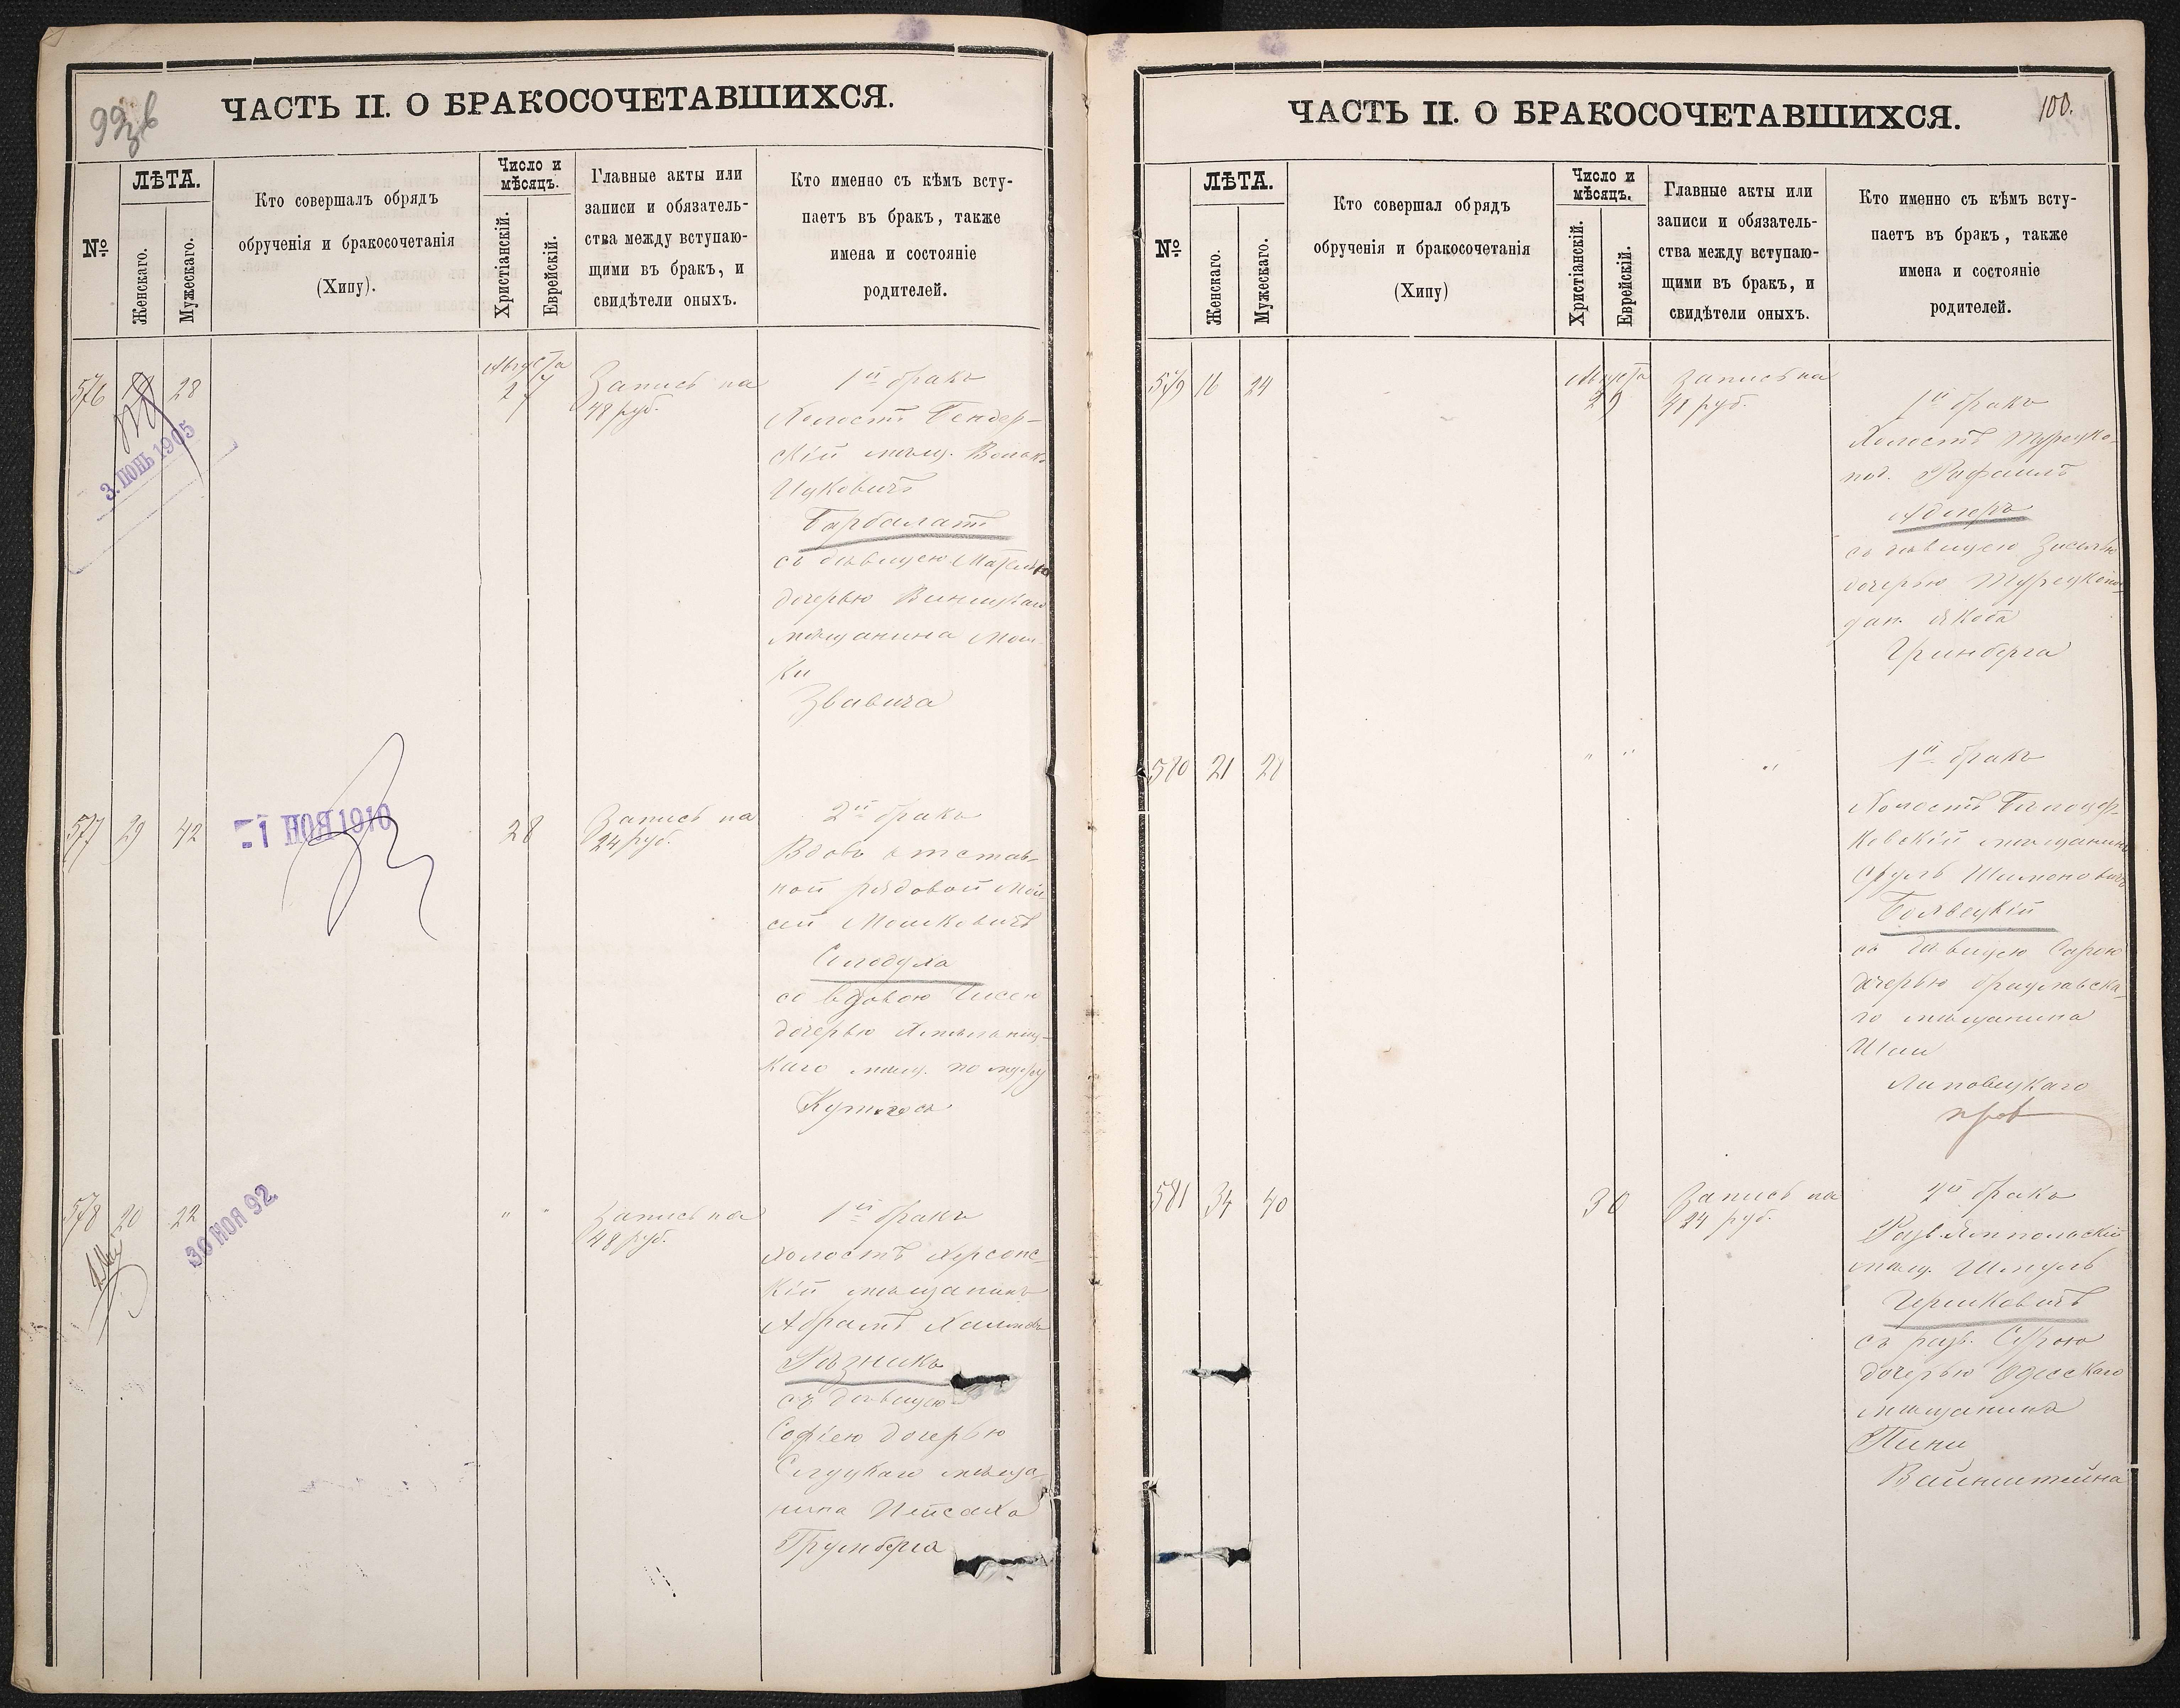 99
ЧАСТЬ II. О БРАКОСОЧЕТАВШИХСЯ.
№
ЛѢТА.
Женскаго.
Мужескаго.
Кто совершалъ обрядъ
обрученія и бракосочетанія
(Хипу).
Число и
мѣсяцъ.
Христіанскій.
Еврейскій.
Главные акты или
записи и обязатель-
ства между вступаю-
щими въ бракъ, и
свидѣтели оныхъ.
Кто именно съ кѣмъ всту-
паетъ въ бракъ, также
имена и состояніе
родителей.
576
28
3. ІЮНЬ 1905
Августа
27
Запись на
48 руб.
1й бракъ
Холостъ Бендер-
скій мѣщ.
Ицковичъ
Барбалатъ
съ дѣвицею
дочерью Виницкаго
мѣщанина Мош-
ки
Звавича
577 29 42
-1 НОЯ 1910
28
Запись на
24 руб.
2й бракъ
Вдовъ отстав-
ной рядовой Мои
сей Мошковичъ
Слободуха
со вдовою
дочерью Хмѣльниц-
каго мѣщ.
578 20 22
30 НОЯ 92
" "
Запись на
48 руб.
1й бракъ
Холостъ Херсонс-
кій мѣщанинъ
Абрамъ
Рѣзникъ
съ дѣвицею
Софіею дочерью
Слуцкаго мѣща-
нина Пейсаха
Грумберга
ЧАСТЬ II. О БРАКОСОЧЕТАВШИХСЯ.
100.
№
ЛѢТА.
Женскаго.
Мужескаго.
Кто совершал обрядъ
обрученія и бракосочетанія
(Хипу)
Число и
мѣсяцъ.
Христіанскій.
Еврейскій.
Главные акты или
записи и обязатель-
ства между вступаю-
щими въ бракъ, и
свидѣтели оныхъ.
Кто именно съ кѣмъ всту-
паетъ въ бракъ, также
имена и состояніе
родителей.
579 16 24
Августа
29
Запись на
48 руб.
1й бракъ
Холостъ Турецко-
под. Рафаилъ
Адлеръ
съ дѣвицею
дочерью
Якоба
Гринберга
580 21 28
" "
"
1й бракъ
Холостъ Бѣлоцер-
ковскій мѣщанинъ
Сруль Шимоновичъ
съ дѣвицею Сарою
дочерью брацлавска-
го мѣщанина
Шаи
Липовецкаго
581 34 40
30
Запись на
24 руб.
2й бракъ
Разв. Ямпольскій
мѣщ. Шмуль
Гершковичъ
съ разв. Сурою
дочерью Одесскаго
мѣщанина
Пини
Вайнштейна